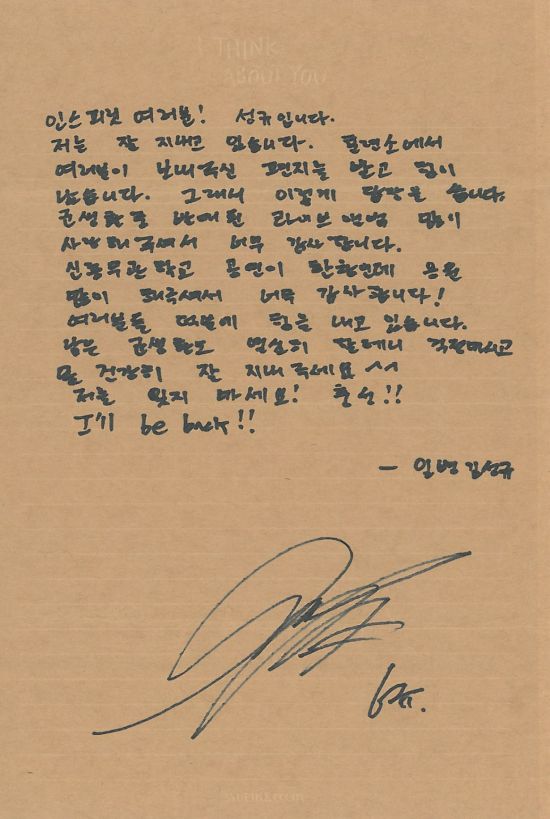 I THINK
ABOUT YOU
인스피릿 여러분! 성규입니다.
저는 잘 지내고 있습니다. 훈련소에서
여러분이 보내주신 편지를 받고 힘이
났습니다. 그래서 이렇게 답장을 씁니다.
군생활 중 발매된 라이브 앨범 많이
사랑해 주셔서 너무 감사합니다.
신흥무관학교 공연이 한창인데 응원
많이 해주셔서 너무 감사합니다!
여러분들 덕분에 힘을 내고 있습니다.
남은 군생활도 열심히 할테니 걱정마시고
몸 건강히 잘 지내주세요 ^^
저를 잊지 마세요! 충성!!
I'll be back!!
- 일병 김성규